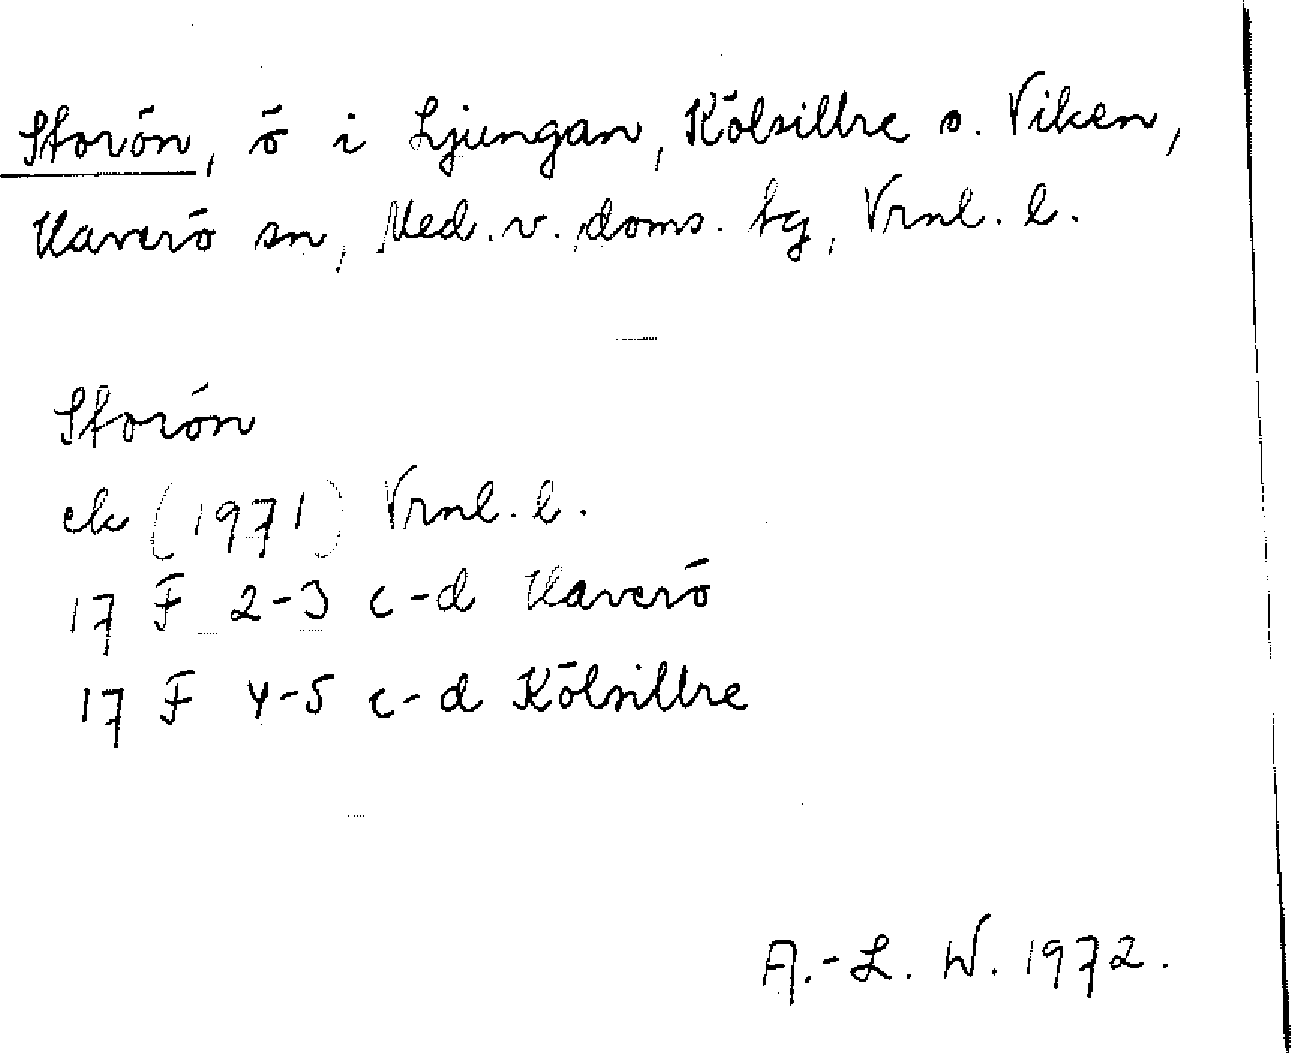 Storön, ö i Ljungan, Kölsillre o. Viken,
Haverö sn, Med. v. doms. tg, Vrnl. l.
Storön
ek (1971) Vrnl. l.
17 F 2-3 c-d Haverö
17 F 4-5 c-d Kölsillre
A.-L. W. 1972.